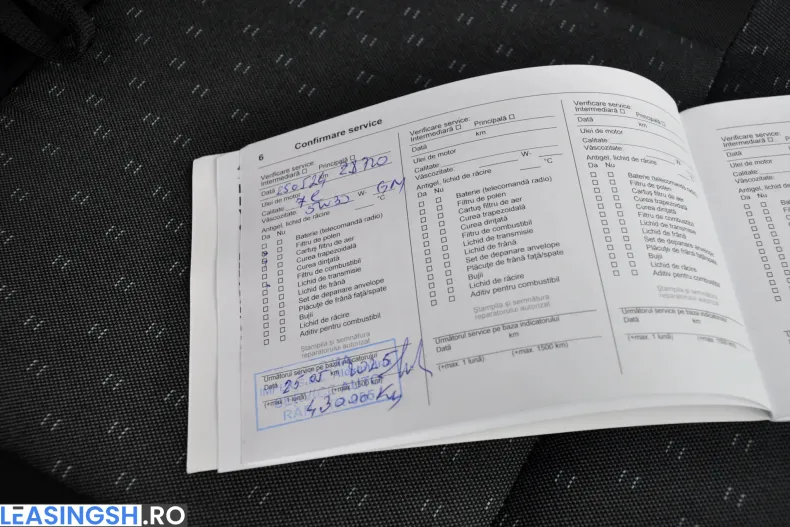 6 Confirmare service
Verificare service:
Intermediară ☐ Principală ☐
Data 250524 km 28720
Ulei de motor
Calitate: W- GM
Vâscozitate: 5W30 °C
Antigel, lichid de răcire
Da Nu
☐ ☐ Baterie (telecomandă radio)
☐ ☐ Filtru de polen
☐ ☐ Cartuş filtru de aer
☐ ☐ Curea trapezoidală
☐ ☐ Curea dinţată
☐ ☐ Filtru de combustibil
☐ ☐ Lichid de transmisie
☐ ☐ Lichid de frână
☐ ☐ Set de depanare anvelope
☐ ☐ Plăcuţe de frână faţă/spate
☐ ☐ Bujii
☐ ☐ Lichid de răcire
☐ ☐ Aditiv pentru combustibil
Ştampila şi semnătura
reparatorului autorizat
Următorul service pe baza indicatorului
Data 25.05 km 2025
(+max. 1 lună) (+max. 1500 km)
43000 Km
Verificare service:
Intermediară ☐ Principală ☐
Data km
Ulei de motor
Calitate: W-
Vâscozitate: °C
Antigel, lichid de răcire
Da Nu
☐ ☐ Baterie (telecomandă radio)
☐ ☐ Filtru de polen
☐ ☐ Cartuş filtru de aer
☐ ☐ Curea trapezoidală
☐ ☐ Curea dinţată
☐ ☐ Filtru de combustibil
☐ ☐ Lichid de transmisie
☐ ☐ Lichid de frână
☐ ☐ Set de depanare anvelope
☐ ☐ Plăcuţe de frână faţă/spate
☐ ☐ Bujii
☐ ☐ Lichid de răcire
☐ ☐ Aditiv pentru combustibil
Ştampila şi semnătura
reparatorului autorizat
Următorul service pe baza indicatorului
Data km
(+max. 1 lună) (+max. 1500 km)
Verificare service:
Intermediară ☐ Principală ☐
Data km
Ulei de motor
Calitate: W-
Vâscozitate: °C
Antigel, lichid de răcire
Da Nu
☐ ☐ Baterie (telecomandă radio)
☐ ☐ Filtru de polen
☐ ☐ Cartuş filtru de aer
☐ ☐ Curea trapezoidală
☐ ☐ Curea dinţată
☐ ☐ Filtru de combustibil
☐ ☐ Lichid de transmisie
☐ ☐ Lichid de frână
☐ ☐ Set de depanare anvelope
☐ ☐ Plăcuţe de frână faţă/spate
☐ ☐ Bujii
☐ ☐ Lichid de răcire
☐ ☐ Aditiv pentru combustibil
Ştampila şi semnătura
reparatorului autorizat
Următorul service pe baza indicatorului
Data km
(+max. 1 lună) (+max. 1500 km)
Verificare
Intermediară
Data
Ulei de motor
Calitate:
Vâscozitate:
Antigel, lichid
Da Nu
LEASINGSH.RO